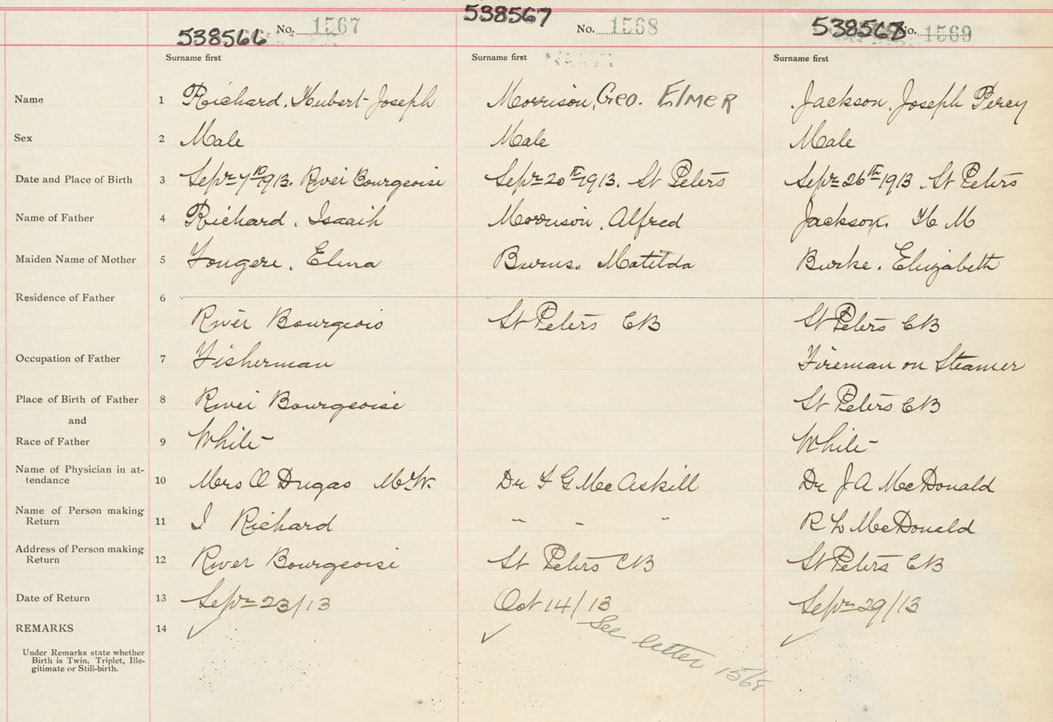 538566 No. 1567 538567 No. 1568 538568 No. 1569
Surname first Surname first Surname first
Name 1 Richard, Hubert Joseph Morrison, Geo. Elmer Jackson, Joseph Percy
Sex 2 Male Male Male
Date and Place of Birth 3 Sepr 7th 1913. River Bourgeoise Sepr 20th 1913. St Peters Sepr 26th 1913. St Peters
Name of Father 4 Richard, Isaaih Morrison, Alfred Jackson, H M
Maiden Name of Mother 5 Fougere, Elma Burns, Matilda Burke, Elizabeth
Residence of Father 6
River Bourgeois St Peters CB St Peters CB
Occupation of Father 7 Fisherman Fireman on Steamer
Place of Birth of Father 8 River Bourgeoise St Peters CB
and
Race of Father 9 White White
Name of Physician in at-
tendance 10 Mrs O Dugas M.W. Dr F G MacAskill Dr J A McDonald
Name of Person making
Return 11 I Richard " " " R L McDonald
Address of Person making
Return 12 River Bourgeoise St Peters CB St Peters CB
Date of Return 13 Sepr 23/13 Oct 14/13 Sepr 29/13
REMARKS 14
See letter 1568
Under Remarks state whether
Birth is Twin, Triplet, Ille-
gitimate or Still-birth.